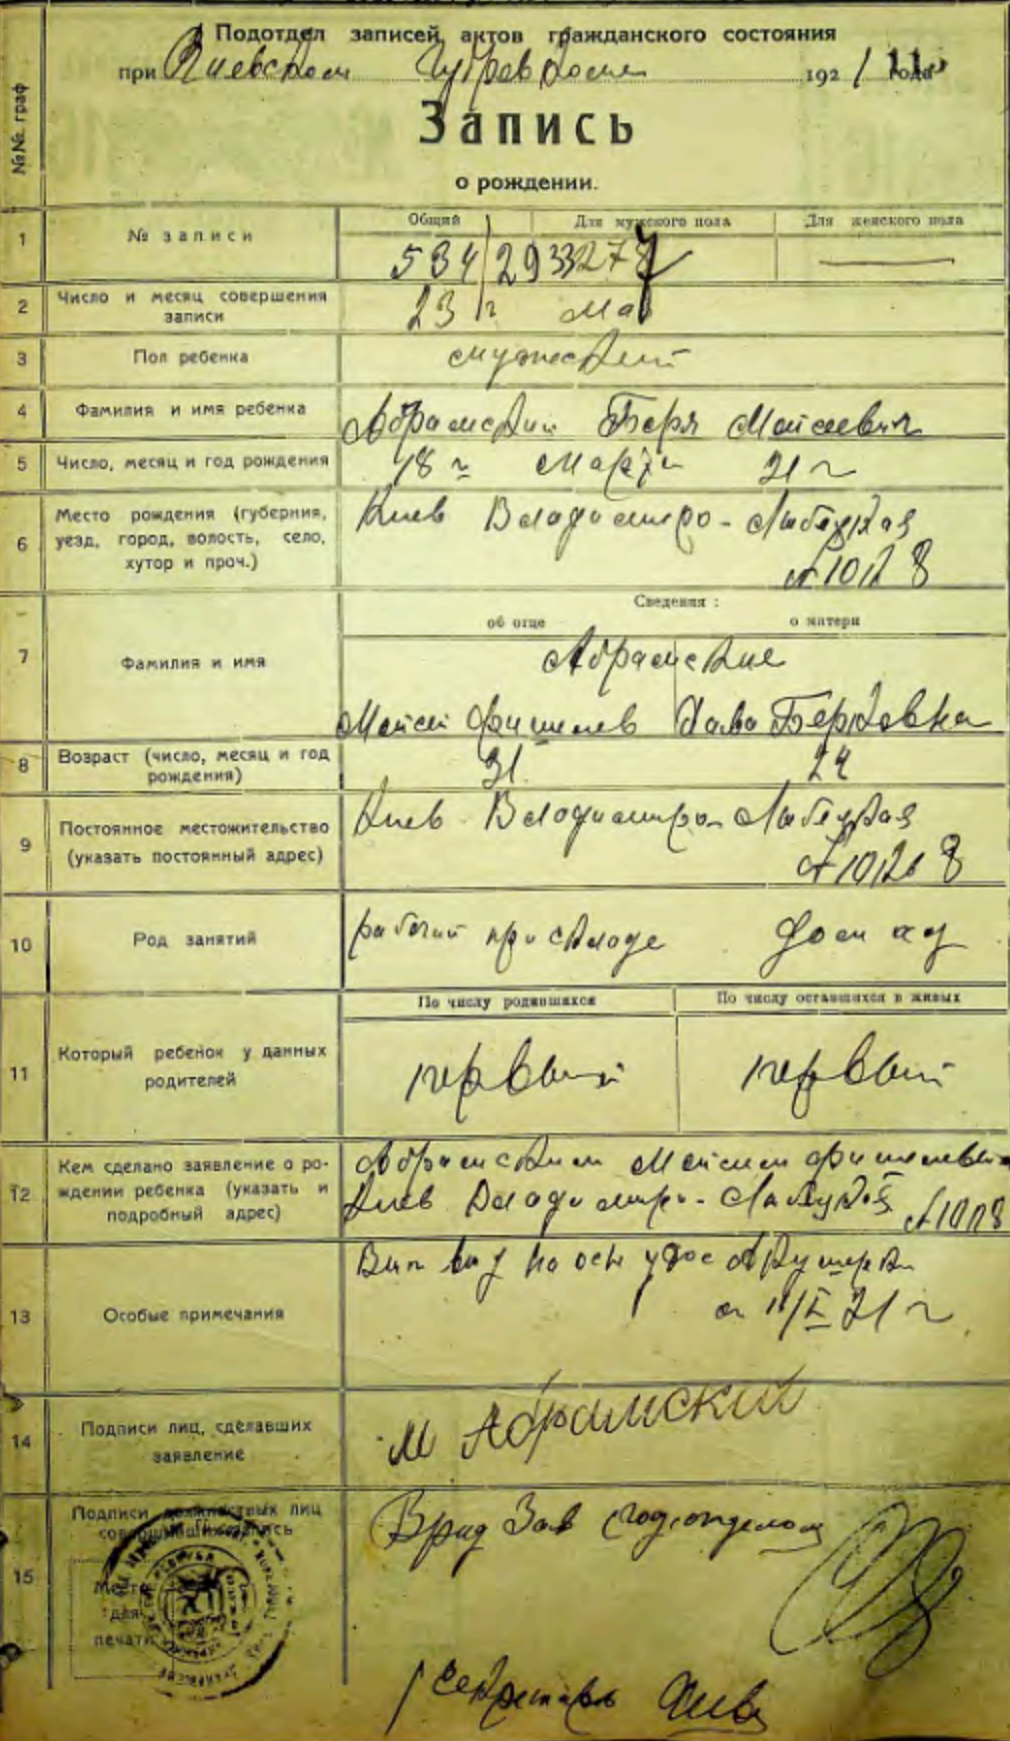 Подотдел записей актов гражданского состояния
при Киевском Губревкоме 1921 года
Запись
о рождении.
№№ граф
1 № записи
Общий Для мужского пола Для женского пола
534
2 Число и месяц совершения записи
23 г мая
3 Пол ребенка мужеский
4 Фамилия и имя ребенка Абрамский Беря Моисеевич
5 Число, месяц и год рождения 18 г Марта 21 г
6 Место рождения (губерния,
уезд, город, волость, село,
хутор и проч.)
Киев Владимиро-Лыбедская
№ 10 8
Сведения:
об отце о матери
7 Фамилия и имя
Абрамские
Моисей Фишелев Хава Берковна
8 Возраст (число, месяц и год
рождения)
31 24
9 Постоянное местожительство
(указать постоянный адрес)
Киев Владимиро-Лыбедская
№ 10 8
10 Род занятий рабочий при складе дом хоз
По числу родившихся По числу оставшихся в живых
11 Который ребенок у данных
родителей
первый первый
12 Кем сделано заявление о ро-
ждении ребенка (указать и
подробный адрес)
Абрамским Моисеем Фишелевым
Киев Владимиро-Лыбедская № 10 8
13 Особые примечания
на осн удос Акушерки
21 г
14 Подписи лиц, сделавших
заявление
М Абрамский
15 Подписи должностных лиц
совершивших запись
Место
для
печати
Врид Зав подотделом
Секретарь